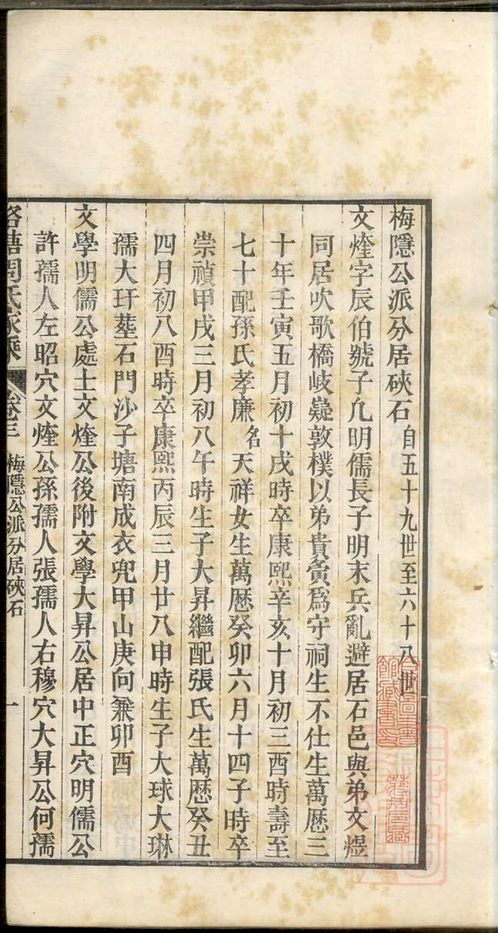 梅隱公派分居硤石自五十九世至六十八世
文煃字辰伯號子凢明儒長子明末兵亂避居石邑與弟文煜
同居吹歌橋岐嶷敦樸以弟貴黃為守祠生不仕生萬厯三
十年壬寅五月初十戌時卒康熙辛亥十月初三酉時壽至
七十配孫氏孝廉名天祥女生萬厯癸卯六月十四子時卒
崇禎甲戌三月初八午時生子大昇繼配張氏生萬厯癸丑
四月初八酉時卒康熙丙辰三月廿八申時生子大球大琳
孺大玗塟石門沙子塘南成衣兜甲山庚向兼卯酉
文學明儒公處士文煃公後附文學大昇公居中正穴明儒公
許孺人左昭穴文煃公孫孺人張孺人右穆穴大昇公何孺
洛塘周氏家乘 卷三 梅隱公派分居硤石 一